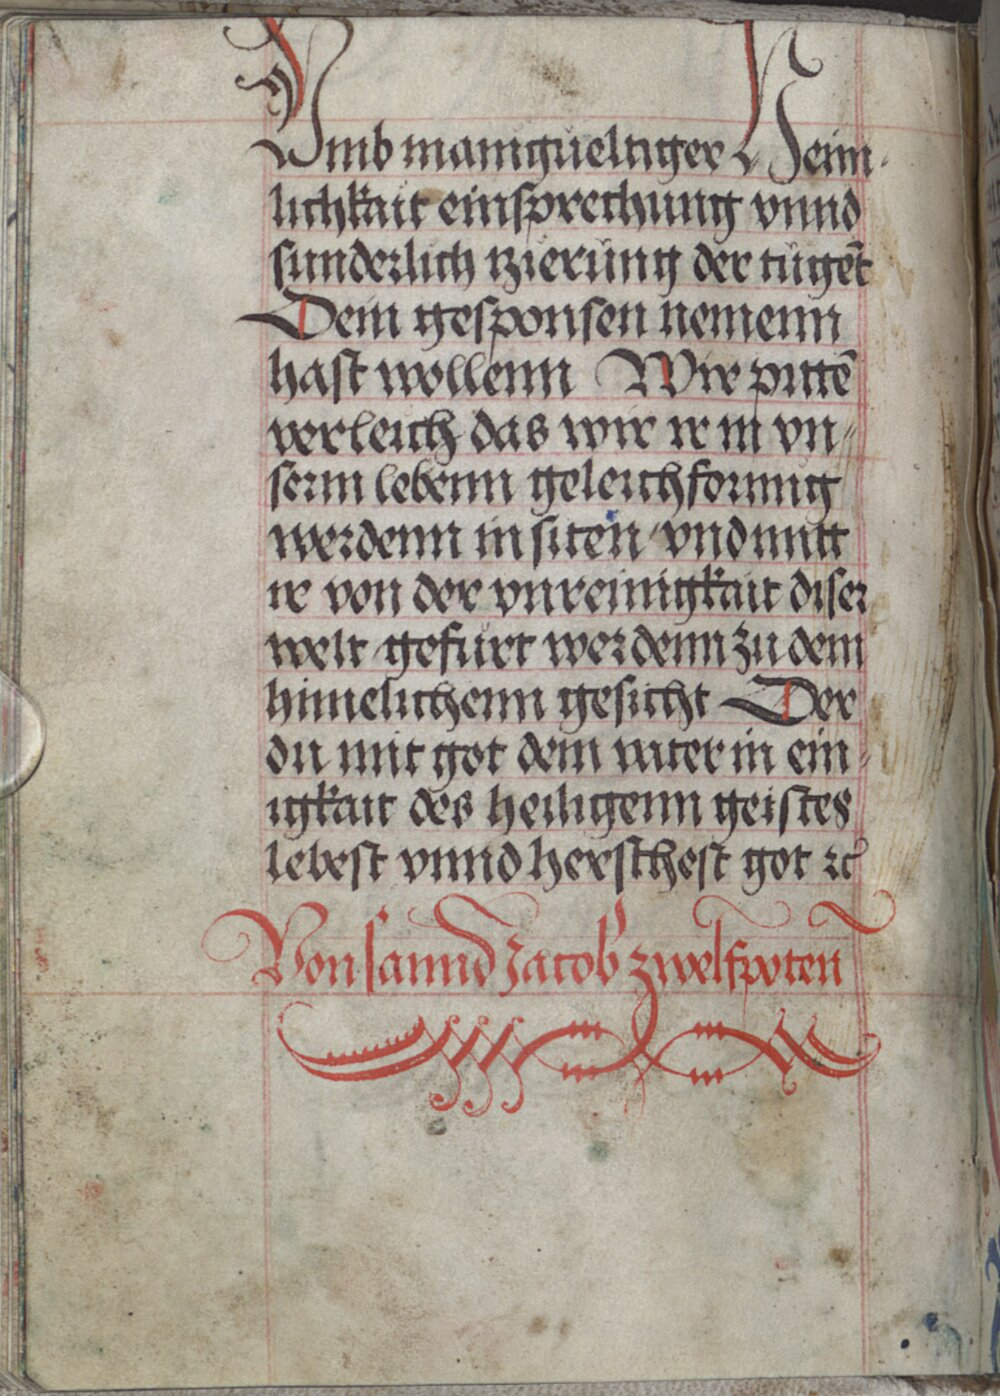 Vmb manigueltiger Heim-
lichkait einsprechung vnnd
sunderlich tzierung der tugēt
Dein gesponsen nemenn
hast wollenn Wir pittē
verleich das wir ir in vn-
serm lebenn geleichformig
werdenn in siten / vnd mitt
ir von der vnreinigkait diser
welt gefurt werdenn zu dem
himelischenn gesicht Der
du mit got dem vater in ein-
igkait des heiligenn geistes
lebest vnnd herschest got ꝛc
Von sannd Jacob zwelfpoten